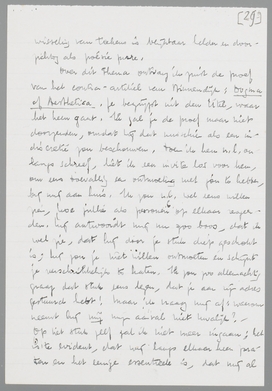 [29]
wisseling van teekens is bepaalbaar helder en door-
zichtig als poëzie pure.
Over dit thema ontving ik juist de proef
van het contra-artikel van Binnendijk: Dogma
of Aesthetica. Je begrijpt uit den titel, waar
het heen gaat. Ik zal je de proef maar niet
doorzenden, omdat hij dat misschien als een in-
discretie zou beschouwen. Toen ik hem n.l. on-
langs schreef, liet ik een invite los voor hem,
om eens toevallig een ontmoeting met jou te hebben,
bij mij aan huis. Ik zou n.l. wel eens willen
zien, hoe jullie als personen op elkaar reageer-
den. Hij antwoordt mij nu zoo boos, dat ik
wel zie, dat hij door je stuk diep geschokt
is; hij zou je niet willen ontmoeten en schijnt
je verschrikkelijk te haten. Ik zou zoo allemachtig
graag dat stuk eens lezen, dat je aan zijn adres
gestuurd hebt! Maar ik vraag mij af: waarom
neemt hij mij mijn aanval niet kwalijk?
Op het stuk zelf zal ik niet meer ingaan; het
is te evident, dat wij langs elkaar heen pra-
ten en het eenige essentieele is, dat wij al